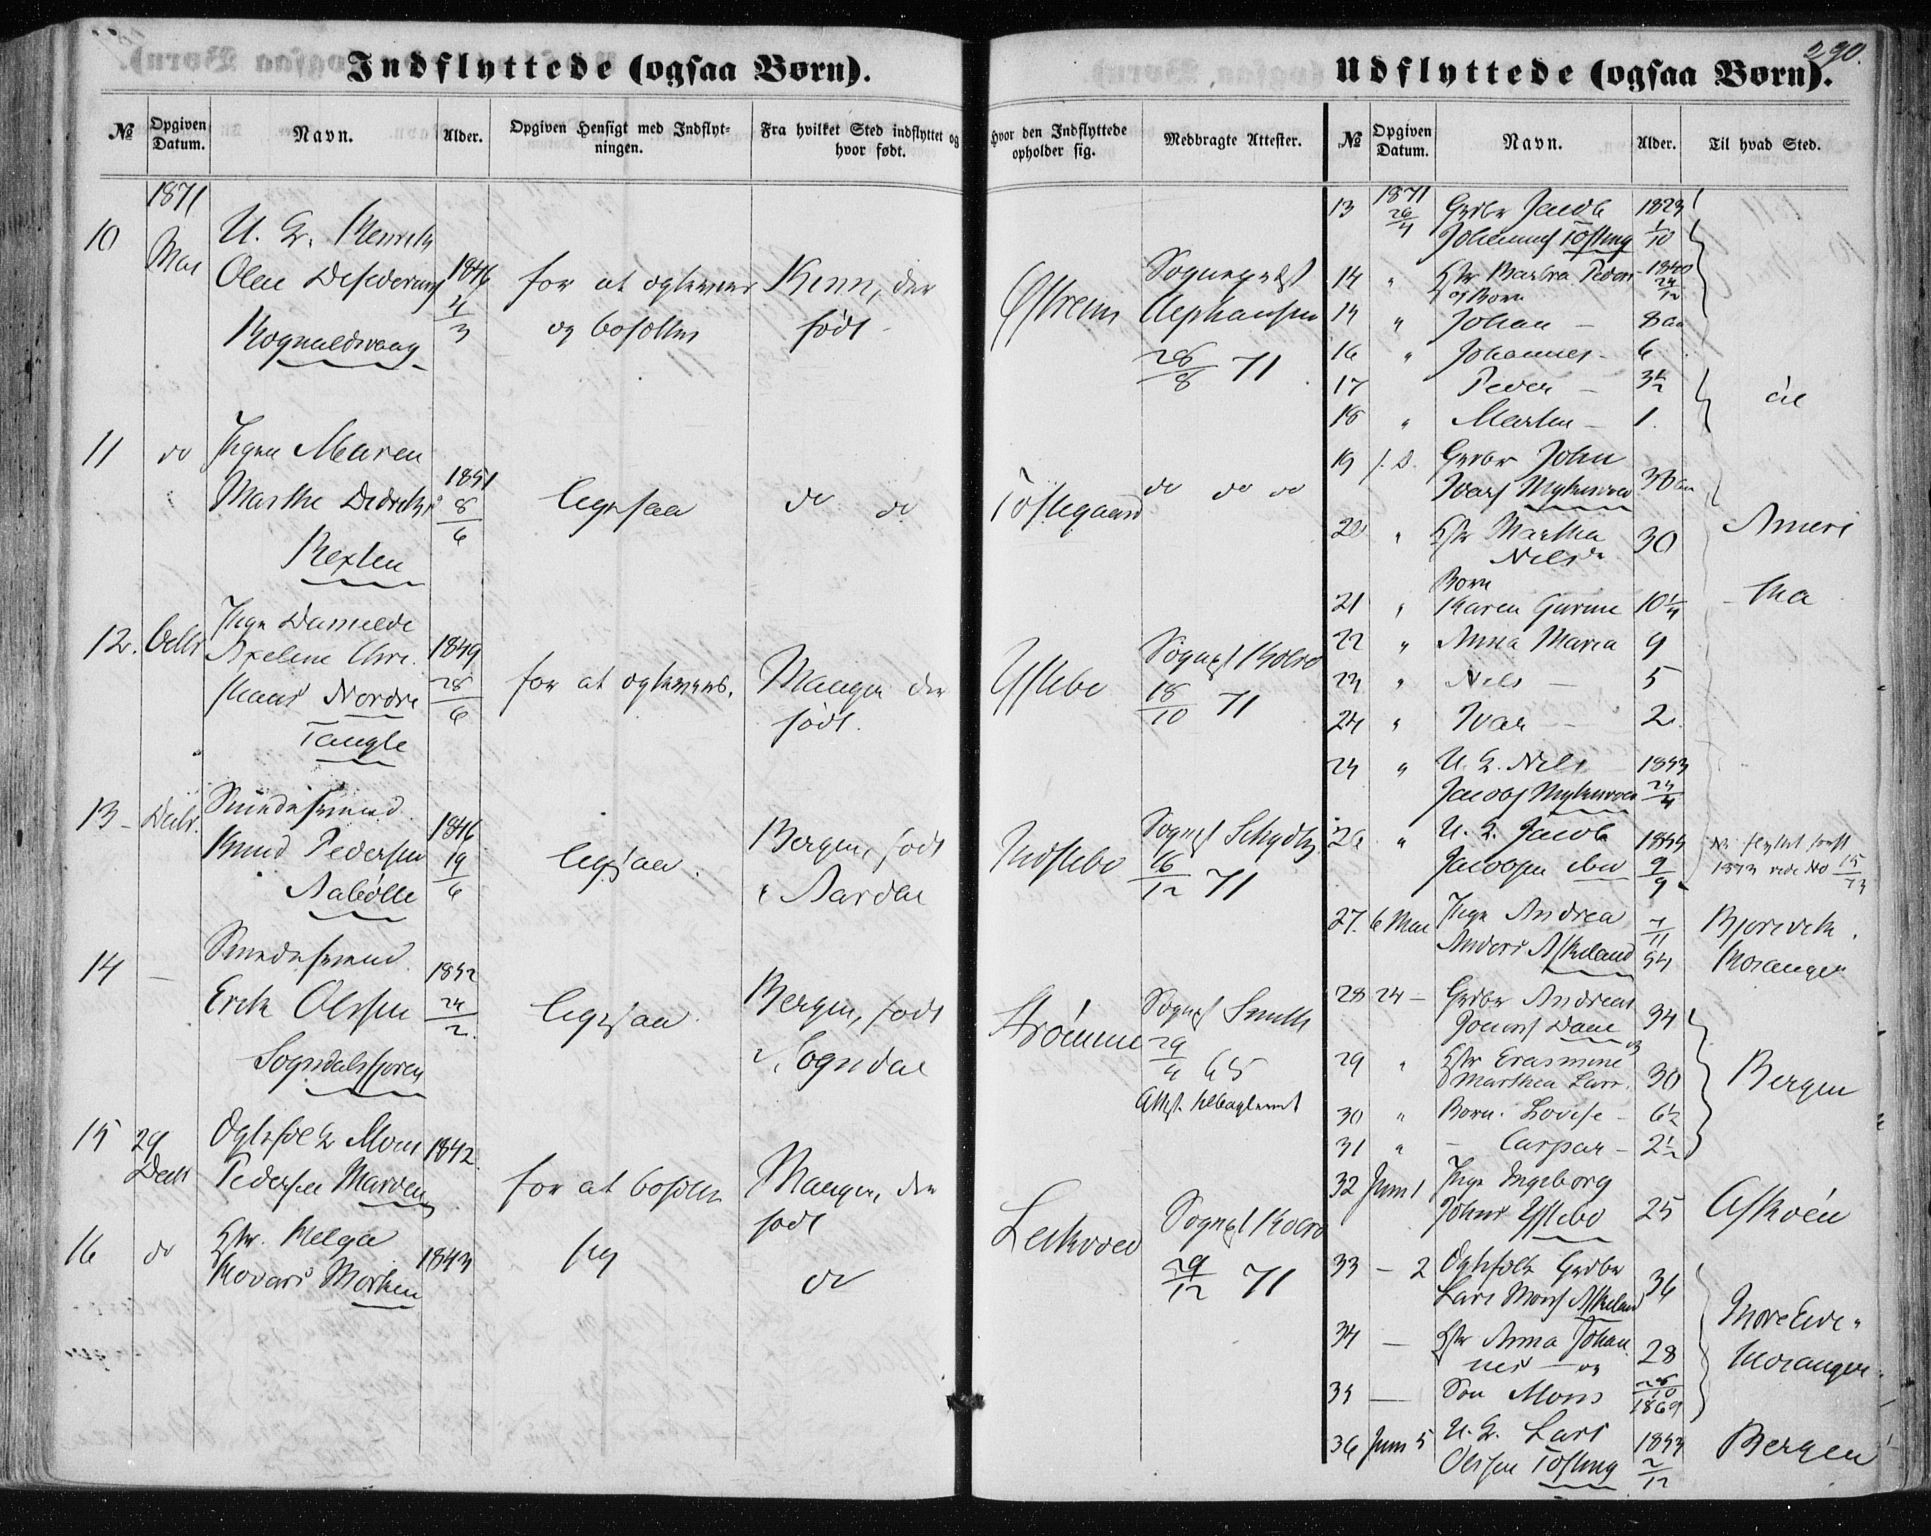 290.
Indflyttede (ogsaa Børn).
№
Opgiven Datum.
Navn.
Alder.
Opgiven Hensigt med Indflyt-
ningen.
Fra hvilket Sted indflyttet og
hvor født.
Hvor den Indflyttede
opholder sig.
Medbragte Attester.
1871
10
Mai
U. K. Henrik
Olai
1846
4/3
for at ogtevies
og bosættes
Kinn, der
født
Østrem
Sogneprest
28/8 71
11
do
Pigen Maren
Marthe Didriks
Rexten
1851
8/6
ligesaa
do do
Toftegaard
do do do
12.
Octbr
Pige Danielde
Axeline Chri-
stians Nordre
Tangle
1849
28/6
for at ogtevies.
Manger der
født.
Ystebø
Sognept Koren
18/10 71
13
Decbr.
Smedesvend
Knud Pedersen
Nabolle
1846
19/6
ligesaa.
Bergen, født
i Aardal
Indstebø
Sognept Schydtz
16/12 71
14
—
Smedesvend
Erik Olsen
Sogndalsfjoren
1852
24/2
ligesaa.
Bergen, født
i Sogndal
Strømme
Sognept Smith
29/4 65
Attest tilbageleveret
15
29
Decbr
Ogtefolk Mons
Pedersen
1842.
for at bosætte
sig
Manger, der
født
Leikvold
Sognept
29/12 71
16
do
Hstr. Helga
Havars Morken
1843
do
Udflyttede (ogsaa Børn).
№
Opgiven Datum.
Navn.
Alder.
Til hvad Sted.
1871
13
26/4
Grdbr Jacob
Johannes Tofting
1823
1/10
14 " Hstr Barbra Peders
og Børn
1840
24/12
15 " Johan — 8 Aar
16 " Johannes — 6
17 Peder — 3½
18 " Martin — 1.
til
19 s. D. Grdbr John
Ivars
36 Aar
20 " Hstr Martha
Nilsdr
30
Ameri
Børn
21 " Karen Gurine 10¼
ka
22 " Anna Maria 9
23 " Nils — 5
24 " Ivar — 2.
25 " U. K. Nils
Jacobs
1853
24/4
26 " U. K. Jacob
Jacobsen ibid
1855
9/9
1873 vide No 15/73
27. 6 Mai Pige Andrea
Anders Askeland
7/11
54
Bjorevik
Hosanger
28 24 — Grdbr Andreas
Jonas Dale og
34
29 " Hstr Erasmine
Marthea Lars.
30
Bergen
30 " Børn. Lovise — 6½
31 " — Caspar — 2½
32 Juni 1 Pige Ingeborg
Johns Ystebø
25
Askøen
33 — 2 Ogtefolk Grdbr
Lars Mons Askeland
36
34 — Hstr Anna Johan-
nes — og
28
Hosanger
35 — Søn Mons
26/10
1869
36 Juni 5 U. K. Lars
Olsen Tofting
1853
2/12
Bergen